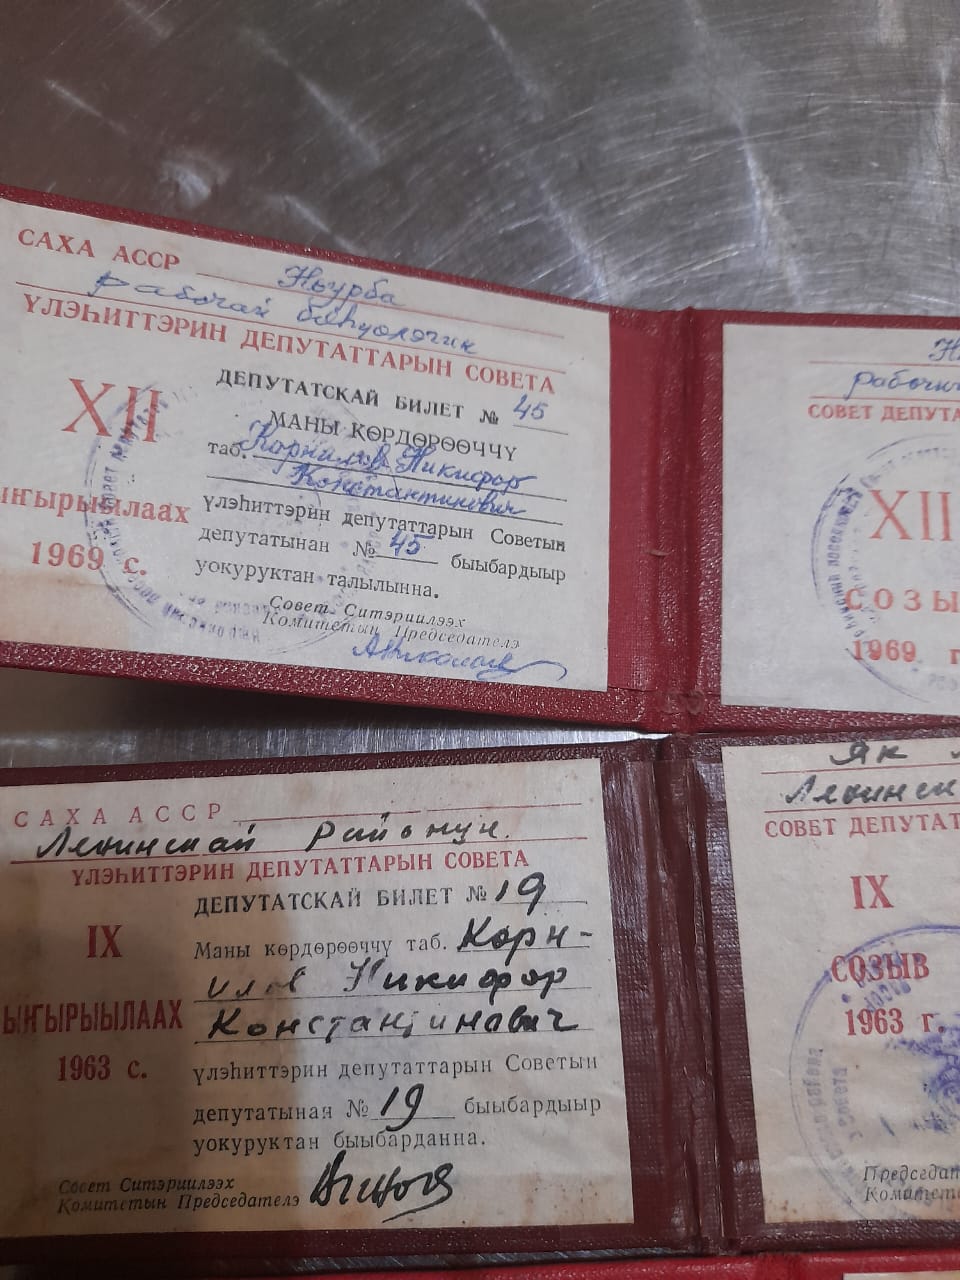 САХА АССР Ньурба
рабочай бөһүөлэгин
ҮЛЭҺИТТЭРИН ДЕПУТАТТАРЫН СОВЕТА
XII
ЫҤГЫРЫЫЛААХ
1969 с.
ДЕПУТАТСКАЙ БИЛЕТ № 45
МАНЫ КӨРДӨРӨӨЧЧҮ
таб. Корнилов Никифор
Константинович
үлэһиттэрин депутаттарын Советын
депутатынан № 45 быыбардыыр
уокуруктан талылынна.
Совет Ситэриилээх
Комитетын Председателэ
рабочи
СОВЕТ ДЕПУТА
XII
СОЗЫ
1969 г
САХА АССР
Ленинскай районун.
ҮЛЭҺИТТЭРИН ДЕПУТАТТАРЫН СОВЕТА
IX
ЫҤГЫРЫЫЛААХ
1963 с.
ДЕПУТАТСКАЙ БИЛЕТ № 19
Маны көрдөрөөччү таб. Корн-
илов Никифор
Константинавич
үлэһиттэрин депутаттарын Советын
депутатынан № 19 быыбардыыр
уокуруктан быыбарданна.
Совет Ситэриилээх
Комитетын Председателэ
Як
Ленинск
СОВЕТ ДЕПУТАТ
IX
СОЗЫВ
1963 г.
Председат
Комитет